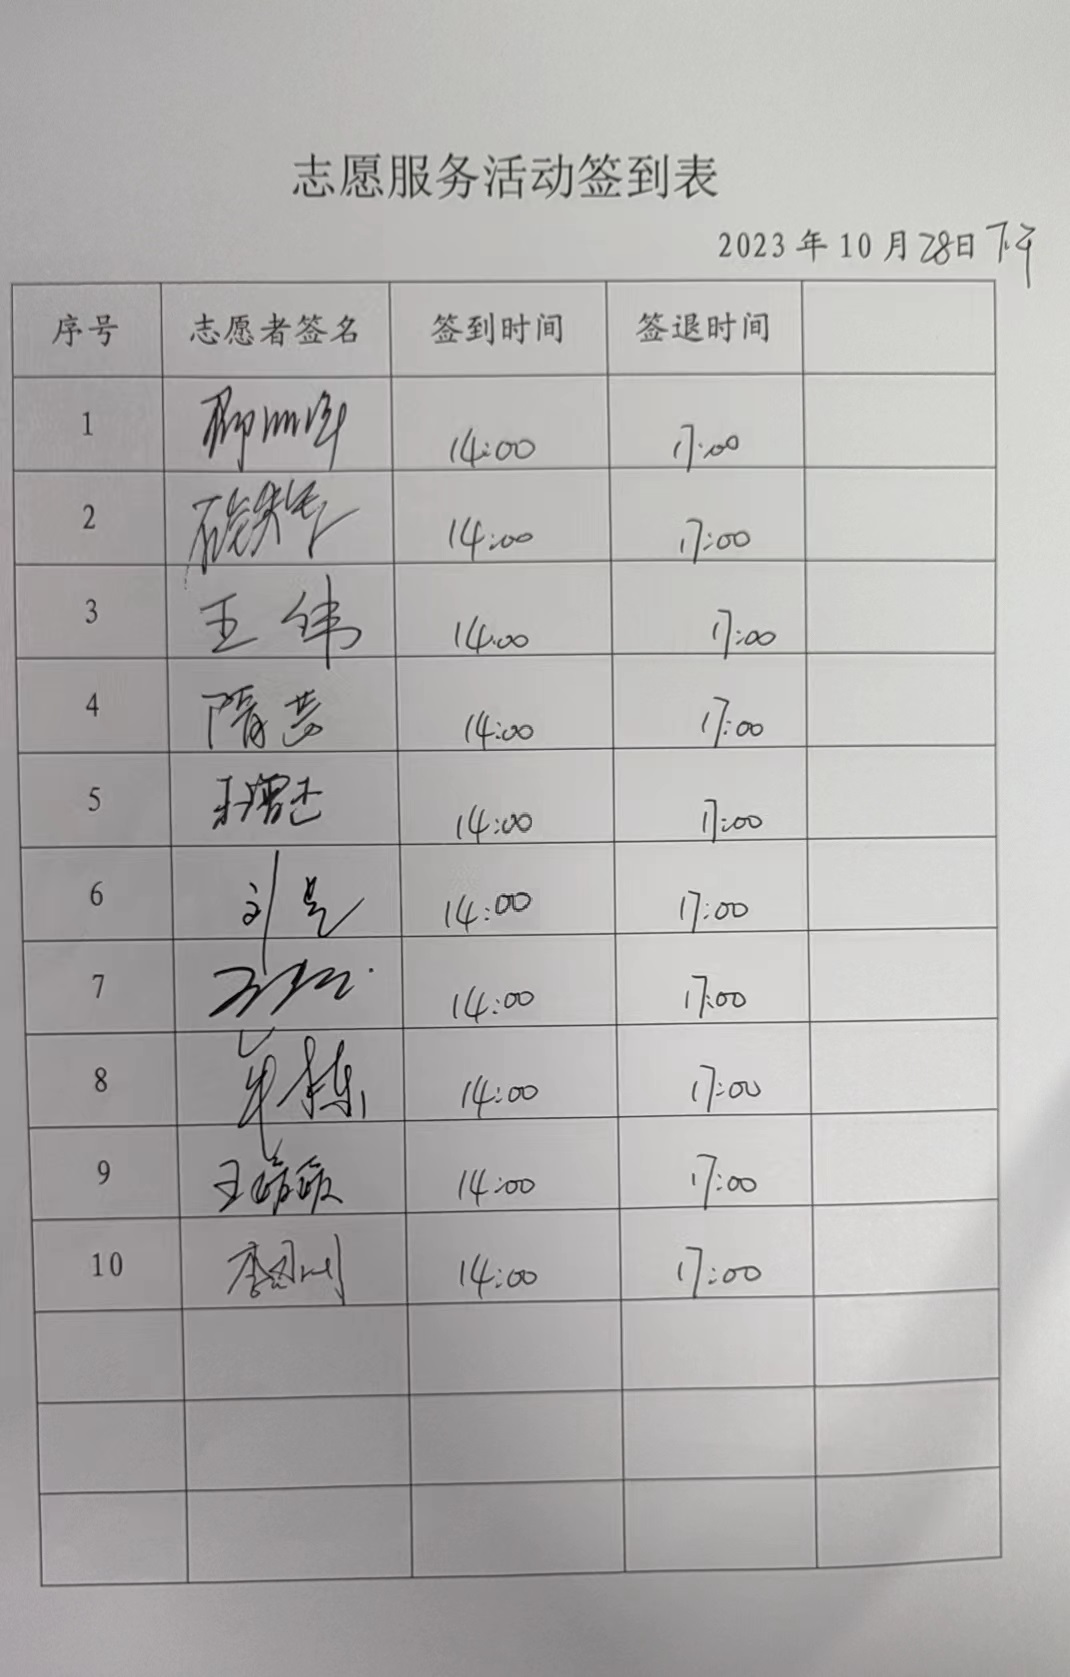 志愿服务活动签到表
2023年10月28日下午
序号 志愿者签名 签到时间 签退时间
1 14:00 17:00
2 14:00 17:00
3 王伟 14:00 17:00
4 隋芸 14:00 17:00
5 14:00 17:00
6 刘 14:00 17:00
7 14:00 17:00
8 牟栋 14:00 17:00
9 王 14:00 17:00
10 李 14:00 17:00